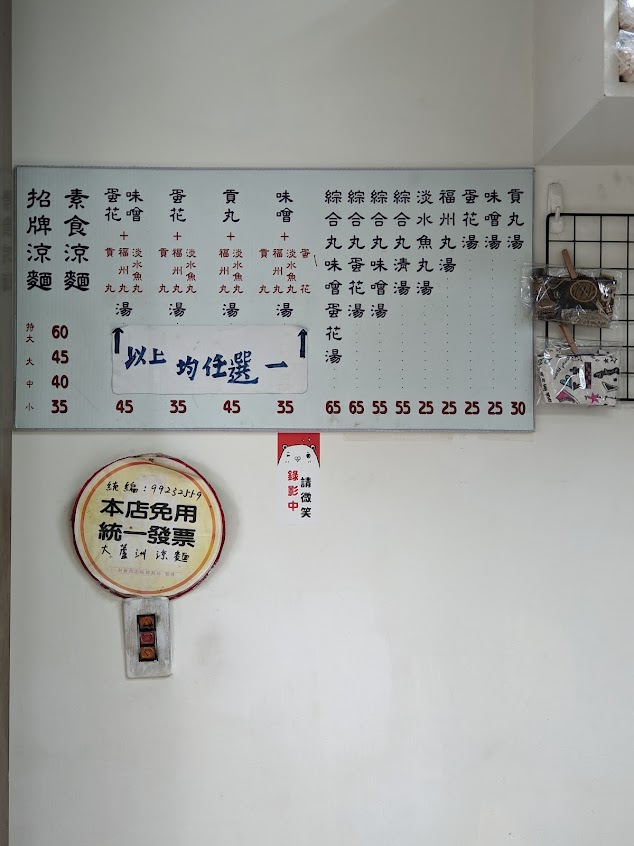 招牌涼麵
素食涼麵
特大 60
大 45
中 40
小 35
蛋花 味噌 + 貢丸 福州丸 淡水魚丸 湯 45
蛋花 + 貢丸 福州丸 淡水魚丸 湯 35
貢丸 + 福州丸 淡水魚丸 湯 45
味噌 + 貢丸 福州丸 淡水魚丸 蛋花 湯 35
以上均任選一
綜合丸味噌蛋花湯 65
綜合丸蛋花湯 65
綜合丸味噌湯 55
綜合丸清湯 55
淡水魚丸湯 25
福州丸湯 25
蛋花湯 25
味噌湯 25
貢丸湯 30
請微笑
錄影中
統編:
本店免用
統一發票
大蘆洲涼麵